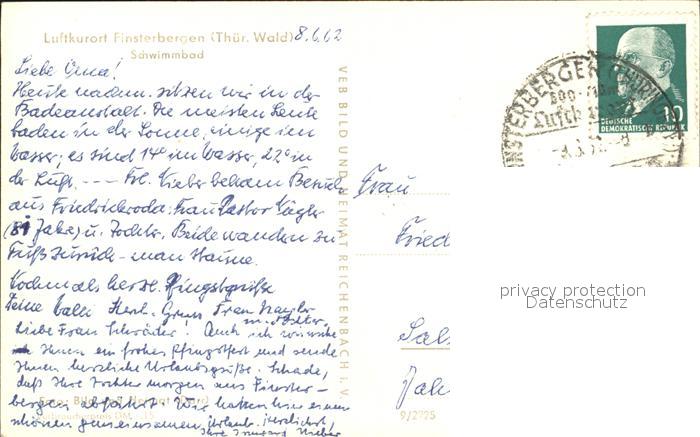 Luftkurort Finsterbergen (Thür. Wald) 8.6.62
Schwimmbad
Liebe Oma!
Heute nachm. sitzen wir in der
Badeanstalt. Die meisten Leute
baden in der Sonne, einige im
Wasser, es sind 14° im Wasser, 22° in
der Luft. --- Frl. Kieber bekam Besuch
aus Friedrichroda: Frau Pastor
(81 Jahre) u. Tochter. Beide wandern zu
Fuß zurück - man staune.
Nochmals herzl. Pfingstgrüße
Deine Herzl. Gruß Frau
Liebe Frau Schröder! Auch ich wünsche
Ihnen ein frohes Pfingstfest und sende
Ihnen herzliche Urlaubsgrüße. Schade,
daß Ihre Tochter morgen aus Finster-
bergen abfährt. Wir hatten hier einen
schönen gemeinsamen Urlaub. Herzlichst,
Ihre Irmgard Kieber
VEB BILD UND HEIMAT REICHENBACH i. V.
9/2725
Frau
Fried
DEUTSCHE
DEMOKRATISCHE REPUBLIK
10
privacy protection
Datenschutz